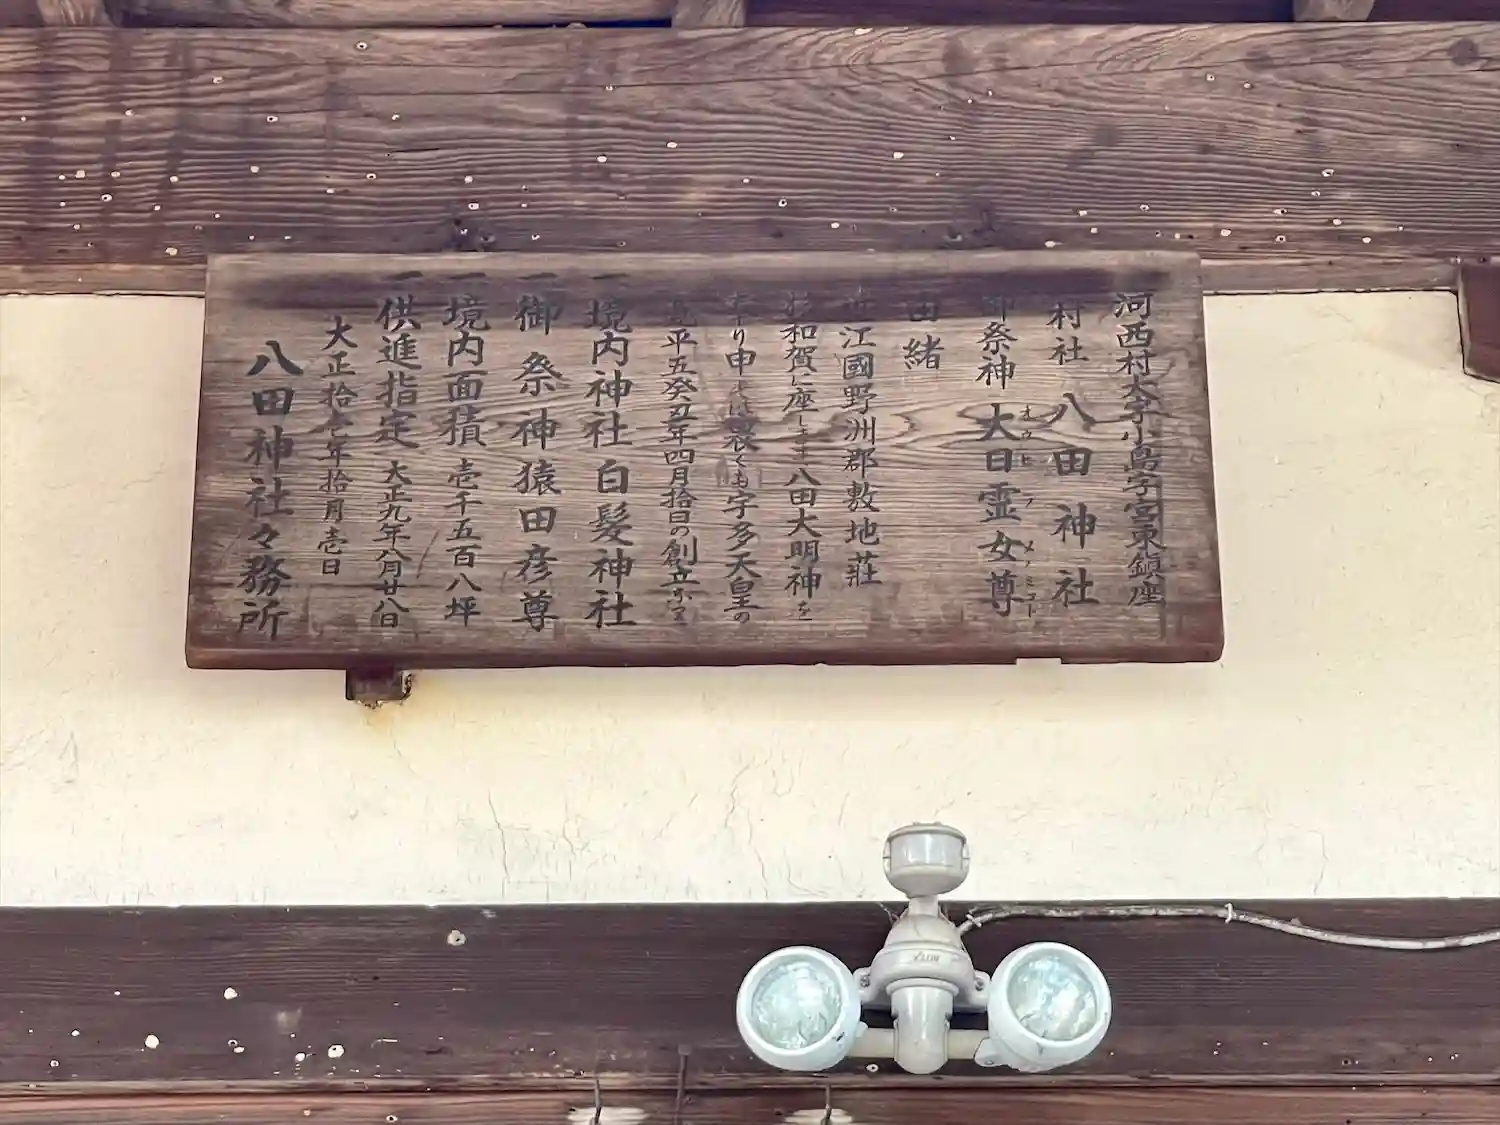 河西村大字小島字宮東鎮座
村社 八田神社
御祭神 大日霊女尊
オウヒ ル メノミコト
由緒
近江國野洲郡敷地莊
和賀に座します八田大明神を
り申 は 裳くも宇多天皇の
寛平五癸丑年四月拾日の創立
一境内神社白髮神社
一御祭神猿田彦尊
一境内面積 壱千五百八坪
一供進指定 大正九年八月廿八日
大正拾壱年拾月壱日
八田神社々務所